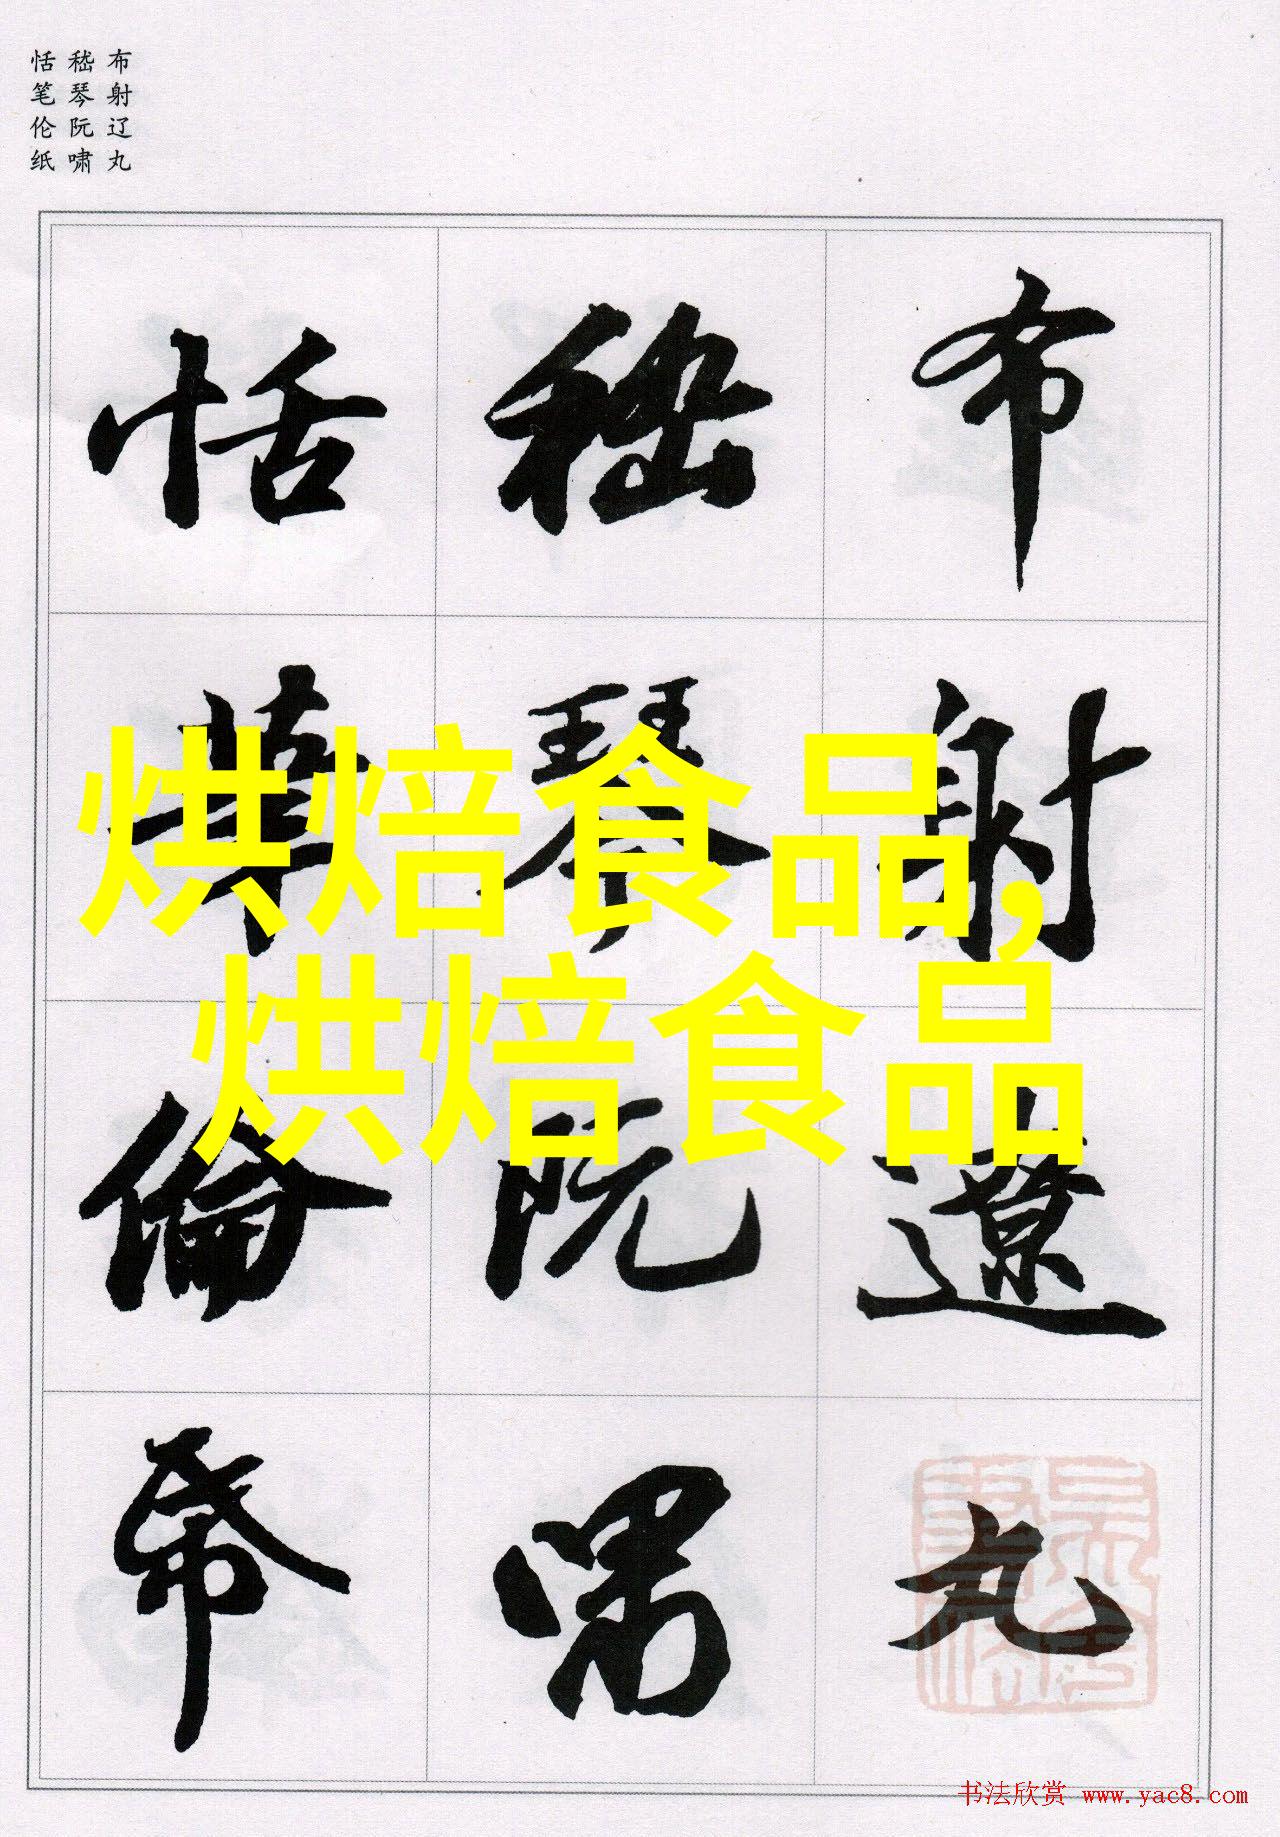 布射辽丸
嵇琴阮啸
恬笔伦纸
布射遼丸
嵇琴阮嘯
恬筆倫帋
烘焙食品,
烘焙食品
书法欣赏 www.yac8.com